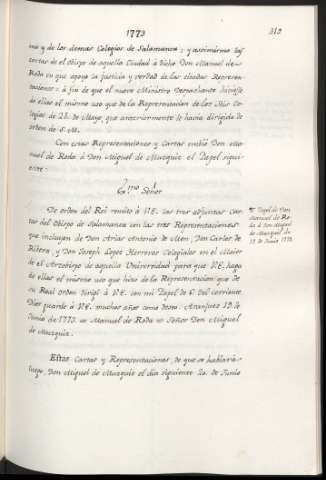 1773
319
mo y de los demas Colegios de Salamanca; y assimismo las
cartas de el Obispo de aquella Ciudad à dicho Don Manuel de
Roda en que apoya la justicia y verdad de las citadas Represen-
taciones: à fin de que el nuevo Ministro Despachante hiciesse
de ellas el mismo uso que de la Representacion de los Seis Co-
legios de 21. de Mayo, que anteriormente le havia dirigido de
orden de S. M.
Con estas Representaciones y Cartas embiò Don Ma-
nuel de Roda à Don Miguel de Muzquiz el Papel sigui-
ente.
Exmo Señor
De orden del Rei remito à V.E. las tres adjuntas Car-
tas del Obispo de Salamanca con las tres Representaciones
que incluyen de Don Arias Antonio de Mon, Don Carlos de
Riters, y Don Joseph Lopez Herreros Colegiales en el Maior
de el Arzobispo de aquella Universidad para que V.E. haga
de ellas el mismo uso que hizo de la Representacion que de
su Real orden dirigì à V.E. con mi Papel de 6. del corriente.
Dios guarde à V.E. muchos años como deseo. Aranjuez 19. de
Junio de 1773. = Manuel de Roda = Señor Don Miguel
de Muzquiz.
Papel de Don
Manuel de Ro-
da à Don Miguel
de Muzquiz de
19 de Junio 1773.
Estas Cartas y Representaciones, de que se hablarà
luego, Don Miguel de Muzquiz el dia siguiente 20. de Junio